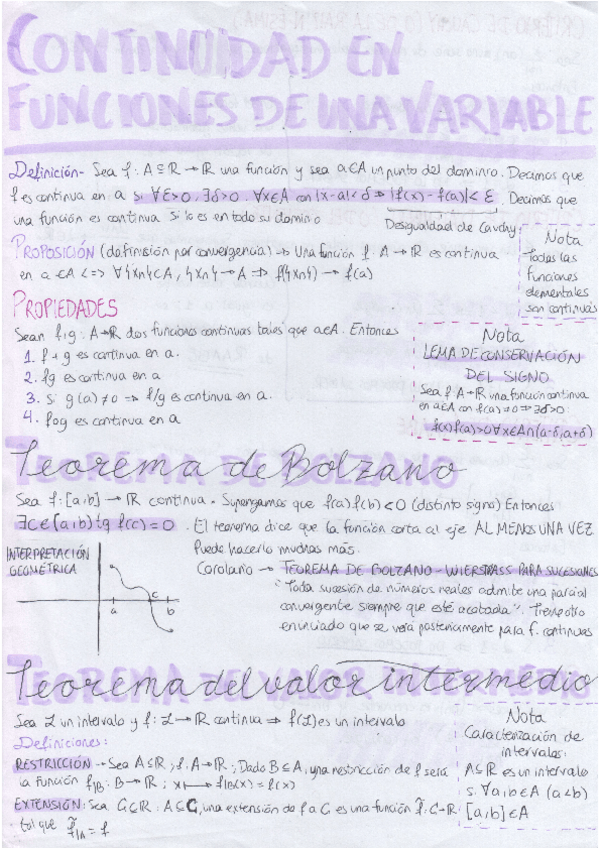 CONTINUIDAD EN
FUNCIONES DE UNA VARIABLE
Definición- Sea f: A⊆ℝ→ℝ una función y sea a∈A un punto del dominio. Decimos que
f es continua en a si ∀ε>0, ∃δ>0, ∀x∈A con |x-a|<δ ⇒ |f(x)-f(a)|<ε. Decimos que
una función es continua si lo es en todo su dominio
Desigualdad de Cauchy
Nota
Todas las
funciones
elementales
son continuas
PROPOSICIÓN (definición por convergencia) → Una función f: A→ℝ es continua
en a∈A <=> ∀{xn}⊂A, {xn}→a ⇒ f({xn})→f(a)
PROPIEDADES
Sean f,g: A→ℝ dos funciones continuas tales que a∈A. Entonces
1. f+g es continua en a.
2. fg es continua en a.
3. Si g(a)≠0 ⇒ f/g es continua en a.
4. fog es continua en a
Nota
LEMA DE CONSERVACIÓN
DEL SIGNO
Sea f: A→ℝ una función continua
en a∈A con f(a)≠0 ⇒ ∃δ>0:
f(x)f(a)>0 ∀x∈A∩(a-δ,a+δ)
Teorema de Bolzano
Sea f:[a,b]→ℝ continua. Supongamos que f(a)f(b)<0 (distinto signo) Entonces
∃c∈[a,b] tq f(c)=0. El teorema dice que la función corta al eje AL MENOS UNA VEZ.
Puede hacerlo muchas más.
INTERPRETACIÓN
GEOMÉTRICA
a c b
Corolario → TEOREMA DE BOLZANO-WIERSTRASS PARA SUCESIONES
"Toda sucesión de números reales admite una parcial
convergente siempre que esté acotada". Tiene otro
enunciado que se verá posteriormente para f. continuas
Teorema del valor intermedio
Sea I un intervalo y f: I→ℝ continua ⇒ f(I) es un intervalo
Definiciones:
RESTRICCIÓN → Sea A⊆ℝ; f: A→ℝ; Dado B⊆A, una restricción de f será
la función f|B: B→ℝ; x↦f|B(x)=f(x)
EXTENSIÓN: Sea G⊆ℝ: A⊆G, una extensión de f a G es una función f̃: G→ℝ
tal que f̃|A = f
Nota
Caracterización de
intervalos:
A⊆ℝ es un intervalo
si ∀a,b∈A (a<b)
[a,b]∈A